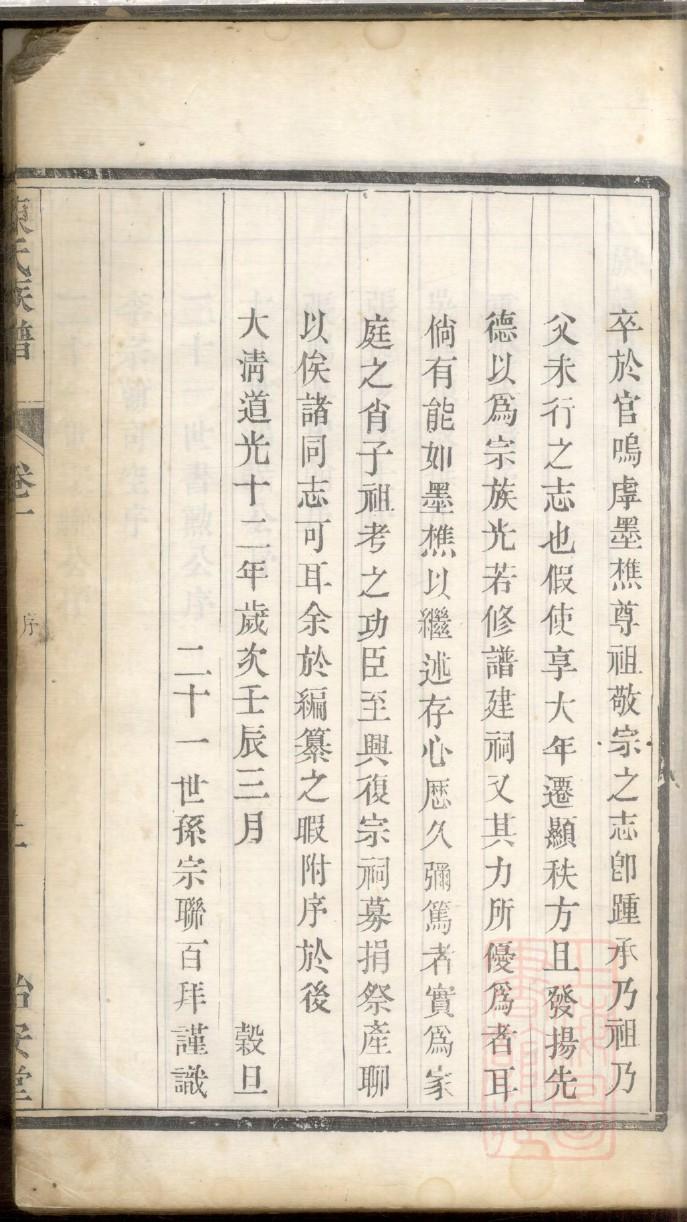 卒於官嗚虖墨樵尊祖敬宗之志卽踵承乃祖乃
父未行之志也假使享大年遷顯秩方且發揚先
德以爲宗族光若修譜建祠又其力所優爲者耳
倘有能如墨樵以繼述存心歷久彌篤者實爲家
庭之肖子祖考之功臣至興復宗祠募捐祭產聊
以俟諸同志可耳余於編纂之暇附序於後
大清道光十二年歲次壬辰三月 穀旦
二十一世孫宗聯百拜謹識
氏族譜 卷一 序